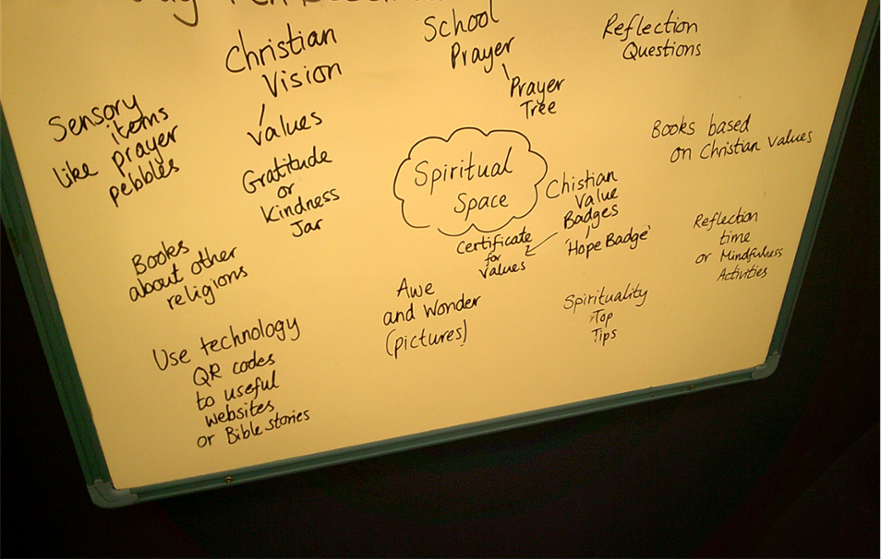 Christian
Vision
Values
School
Prayer
Prayer
Tree
Reflection
Questions
Sensory
items
like prayer
pebbles
Gratitude
or
Kindness
Jar
Spiritual
Space
Chistian
Value
Badges
'Hope Badge'
Certificate
for
Values
Books based
on Christian Values
Books
about other
religions
Awe
and Wonder
(pictures)
Reflection
time
or Mindfulness
Activities
Spirituality
Top
Tips
Use technology
QR codes
to useful
websites
or Bible stories